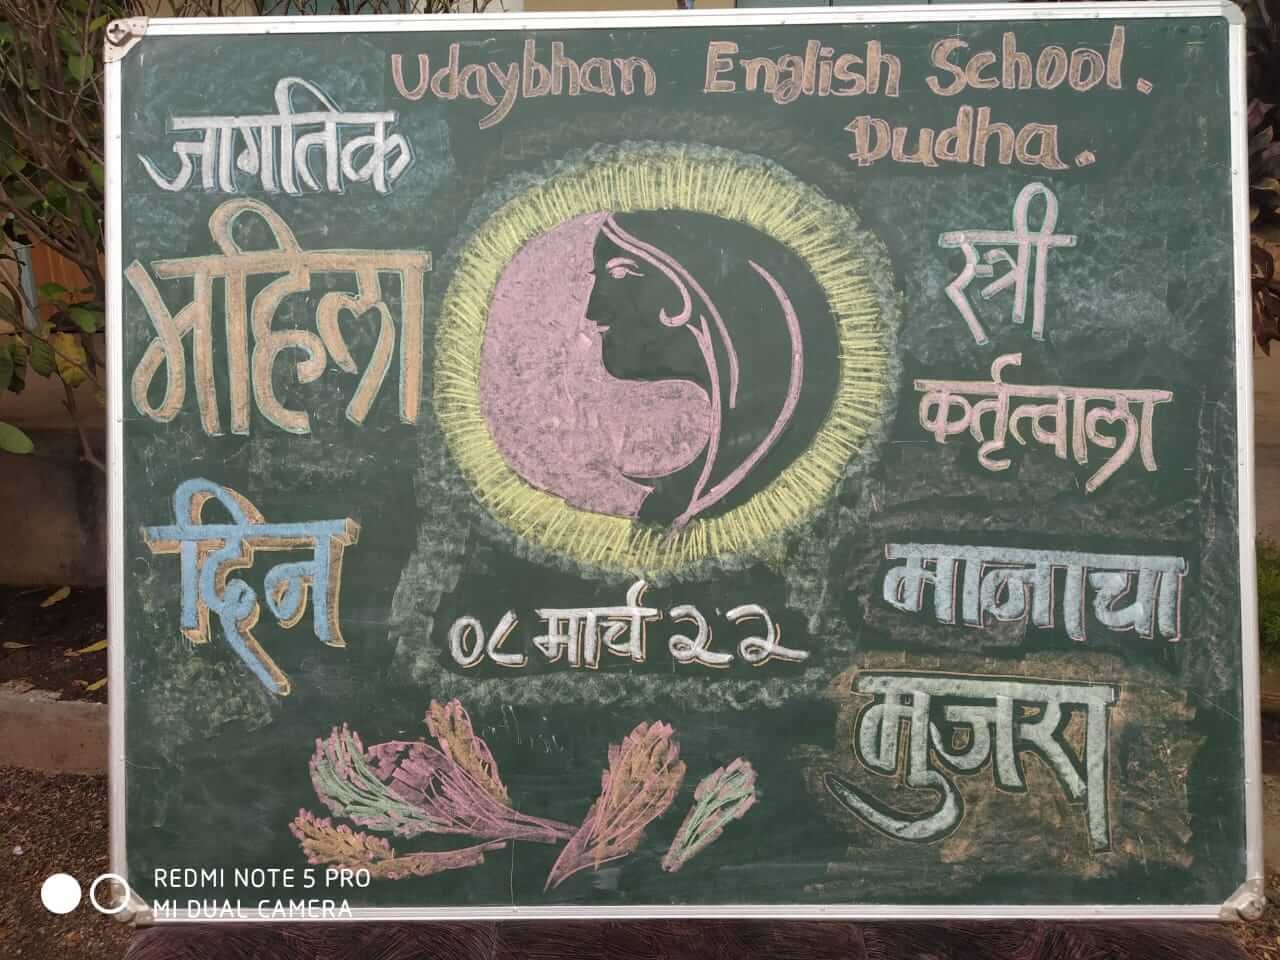 Udaybhan English School.
Dudha.
जागतिक
महिला
दिन
०८ मार्च २२
स्त्री
कर्तृत्वाला
मानाचा
मुजरा
REDMI NOTE 5 PRO
MI DUAL CAMERA